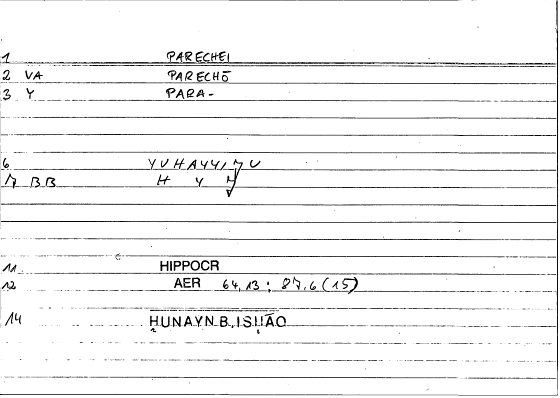 1 PARECHEI
2 VA PARECHŌ
3 Y PARA-
6 YUHAYYI,7U
17 BB H Y
11 HIPPOCR
12 AER 64,13; 87,6(15)
14 ḤUNAYN.B.,ISḤĀQ